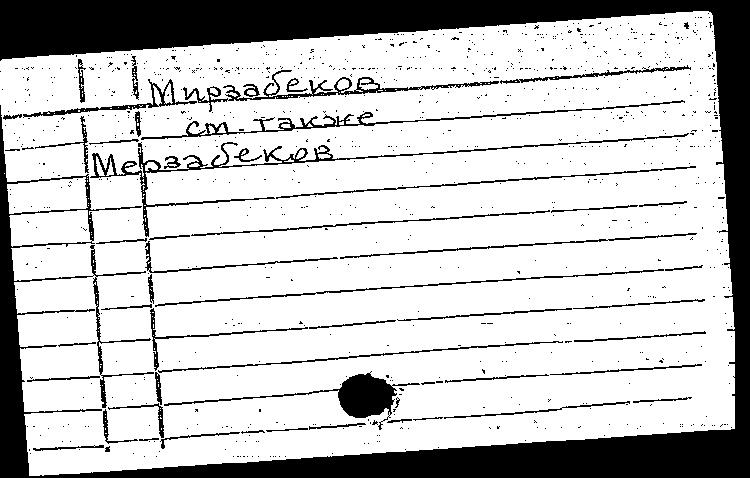 Мирзабеков
см. также
Мерзабеков